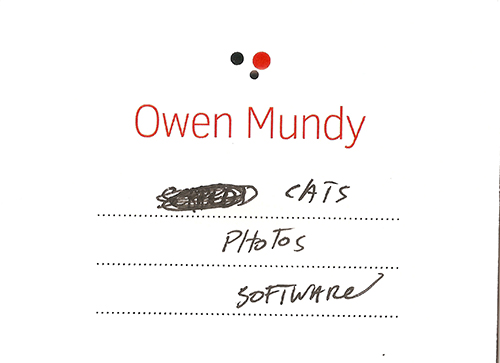 Owen Mundy
CATS
PHOTOS
SOFTWARE